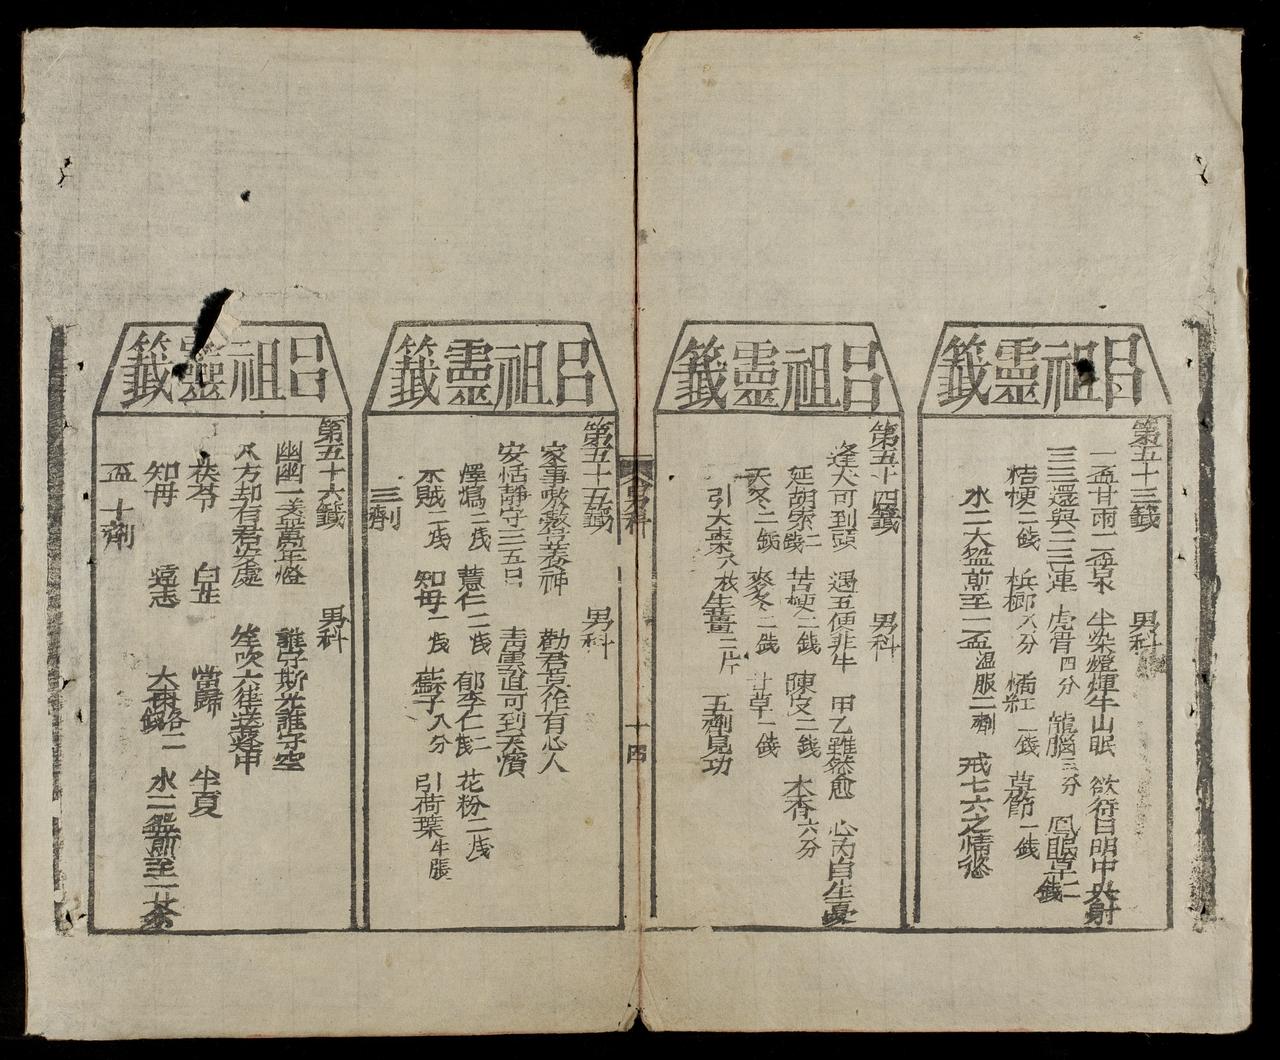 呂祖靈籤
第五十三籤 男科
一盃甘雨一盃泉 半染燈煇半山眠 欲待日明中
三三還與二三連 虎骨四分 龍腦三分 鳳眠草二錢
桔梗二錢 梹榔八分 橘紅一錢 草節一錢
水二大盌煎至一盃溫服一劑 戒七六之情慾
呂祖靈籤
第五十四籤 男科
逢犬可到頭 遇五便非牛 甲乙雖然愈 心內自生憂
延胡索二錢 苦梗二錢 陳皮二錢 木香六分
天冬二錢 麥冬二錢 甘草一錢
引大棗八枚生薑二片 五劑見功
男科
十四
呂祖靈籤
第五十五籤 男科
家事嗷嗷嘗養神 勸君莫作有心人
安恬靜守三五日 青雲道可到天濱
澤瀉二戋 薏仁二戋 郁李仁二戋 花粉二戋
木賊一戋 知母一戋 蘇子八分 引荷葉半張
三劑
呂祖靈籤
第五十六籤 男科
幽幽一送萬年燈 誰守斯光誰守空
八方却有君安處 笙吹六隹送蓬中
茯苓 白芷 當歸 半夏
知母 遠志 水二盌煎至一茶
盃 十劑